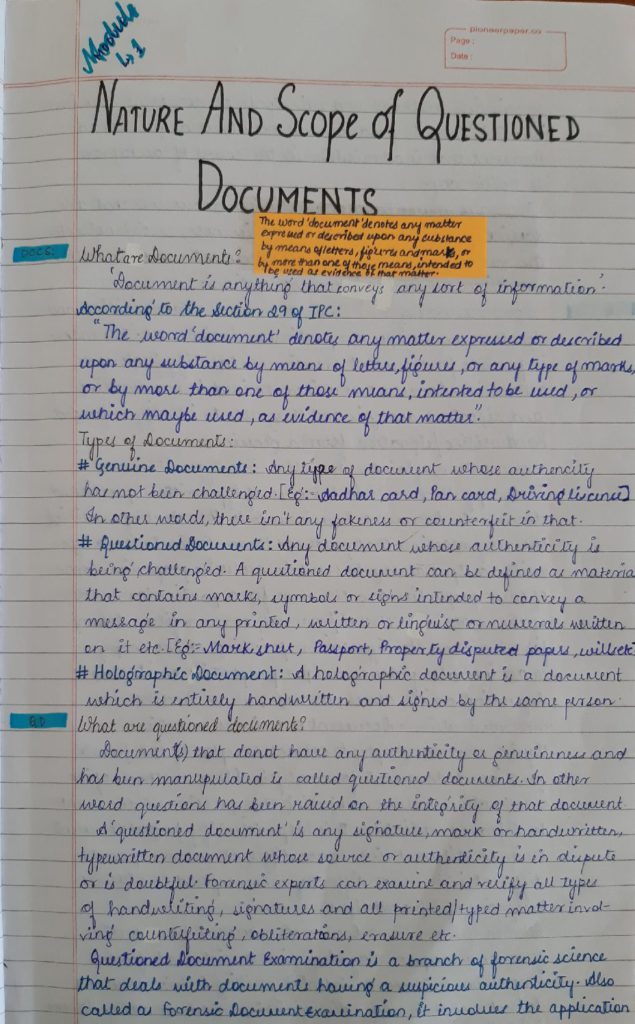 Module
↳ 1
pioneerpaper.co
Page :
Date :
NATURE AND SCOPE Of QUESTIONED
DOCUMENTS
The word 'document' denotes any matter
expressed or described upon any substance
by means of letters, figures and marks, or
by more than one of those means, intended to
be used as evidence of that matter.
DOCS.
What are Documents?
'Document is anything that conveys any sort of information'.
According to the Section 29 of IPC:
"The word 'document' denotes any matter expressed or described
upon any substance by means of letters, figures, or any type of marks,
or by more than one of those means, intented to be used, or
which maybe used, as evidence of that matter".
Types of Documents:
# Genuine Documents: Any type of document whose authencity
has not been challenged. [Eg:- Aadhar card, Pan card, Driving liscence]
In other words, there isn't any fakeness or counterfeit in that.
# Questioned Documents: Any document whose authenticity is
being challenged. A questioned document can be defined as materia
that contains marks, symbols or signs intended to convey a
message in any printed, written or linguist or numerals written
on it etc. [Eg:- Mark sheet, Passport, Property disputed papers, wills etc
# Holographic Document: A holographic document is a document
which is entirely handwritten and signed by the same person.
QD
What are questioned documents?
Document(s) that donot have any authenticity or genuineness and
has been manupulated is called questioned documents. In other
word questions has been raised on the integrity of that document.
A 'questioned document' is any signature, mark or handwritten,
typewritten document whose source or authenticity is in dispute
or is doubtful. Forensic experts can examine and verify all types
of handwriting, signatures and all printed/typed matter invol-
ving counterfeiting, obliterations, erasure etc.
Questioned Document Examination is a branch of forensic science
that deals with documents having a suspicious authenticity. Also
called as Forensic Document Examination, it involves the application